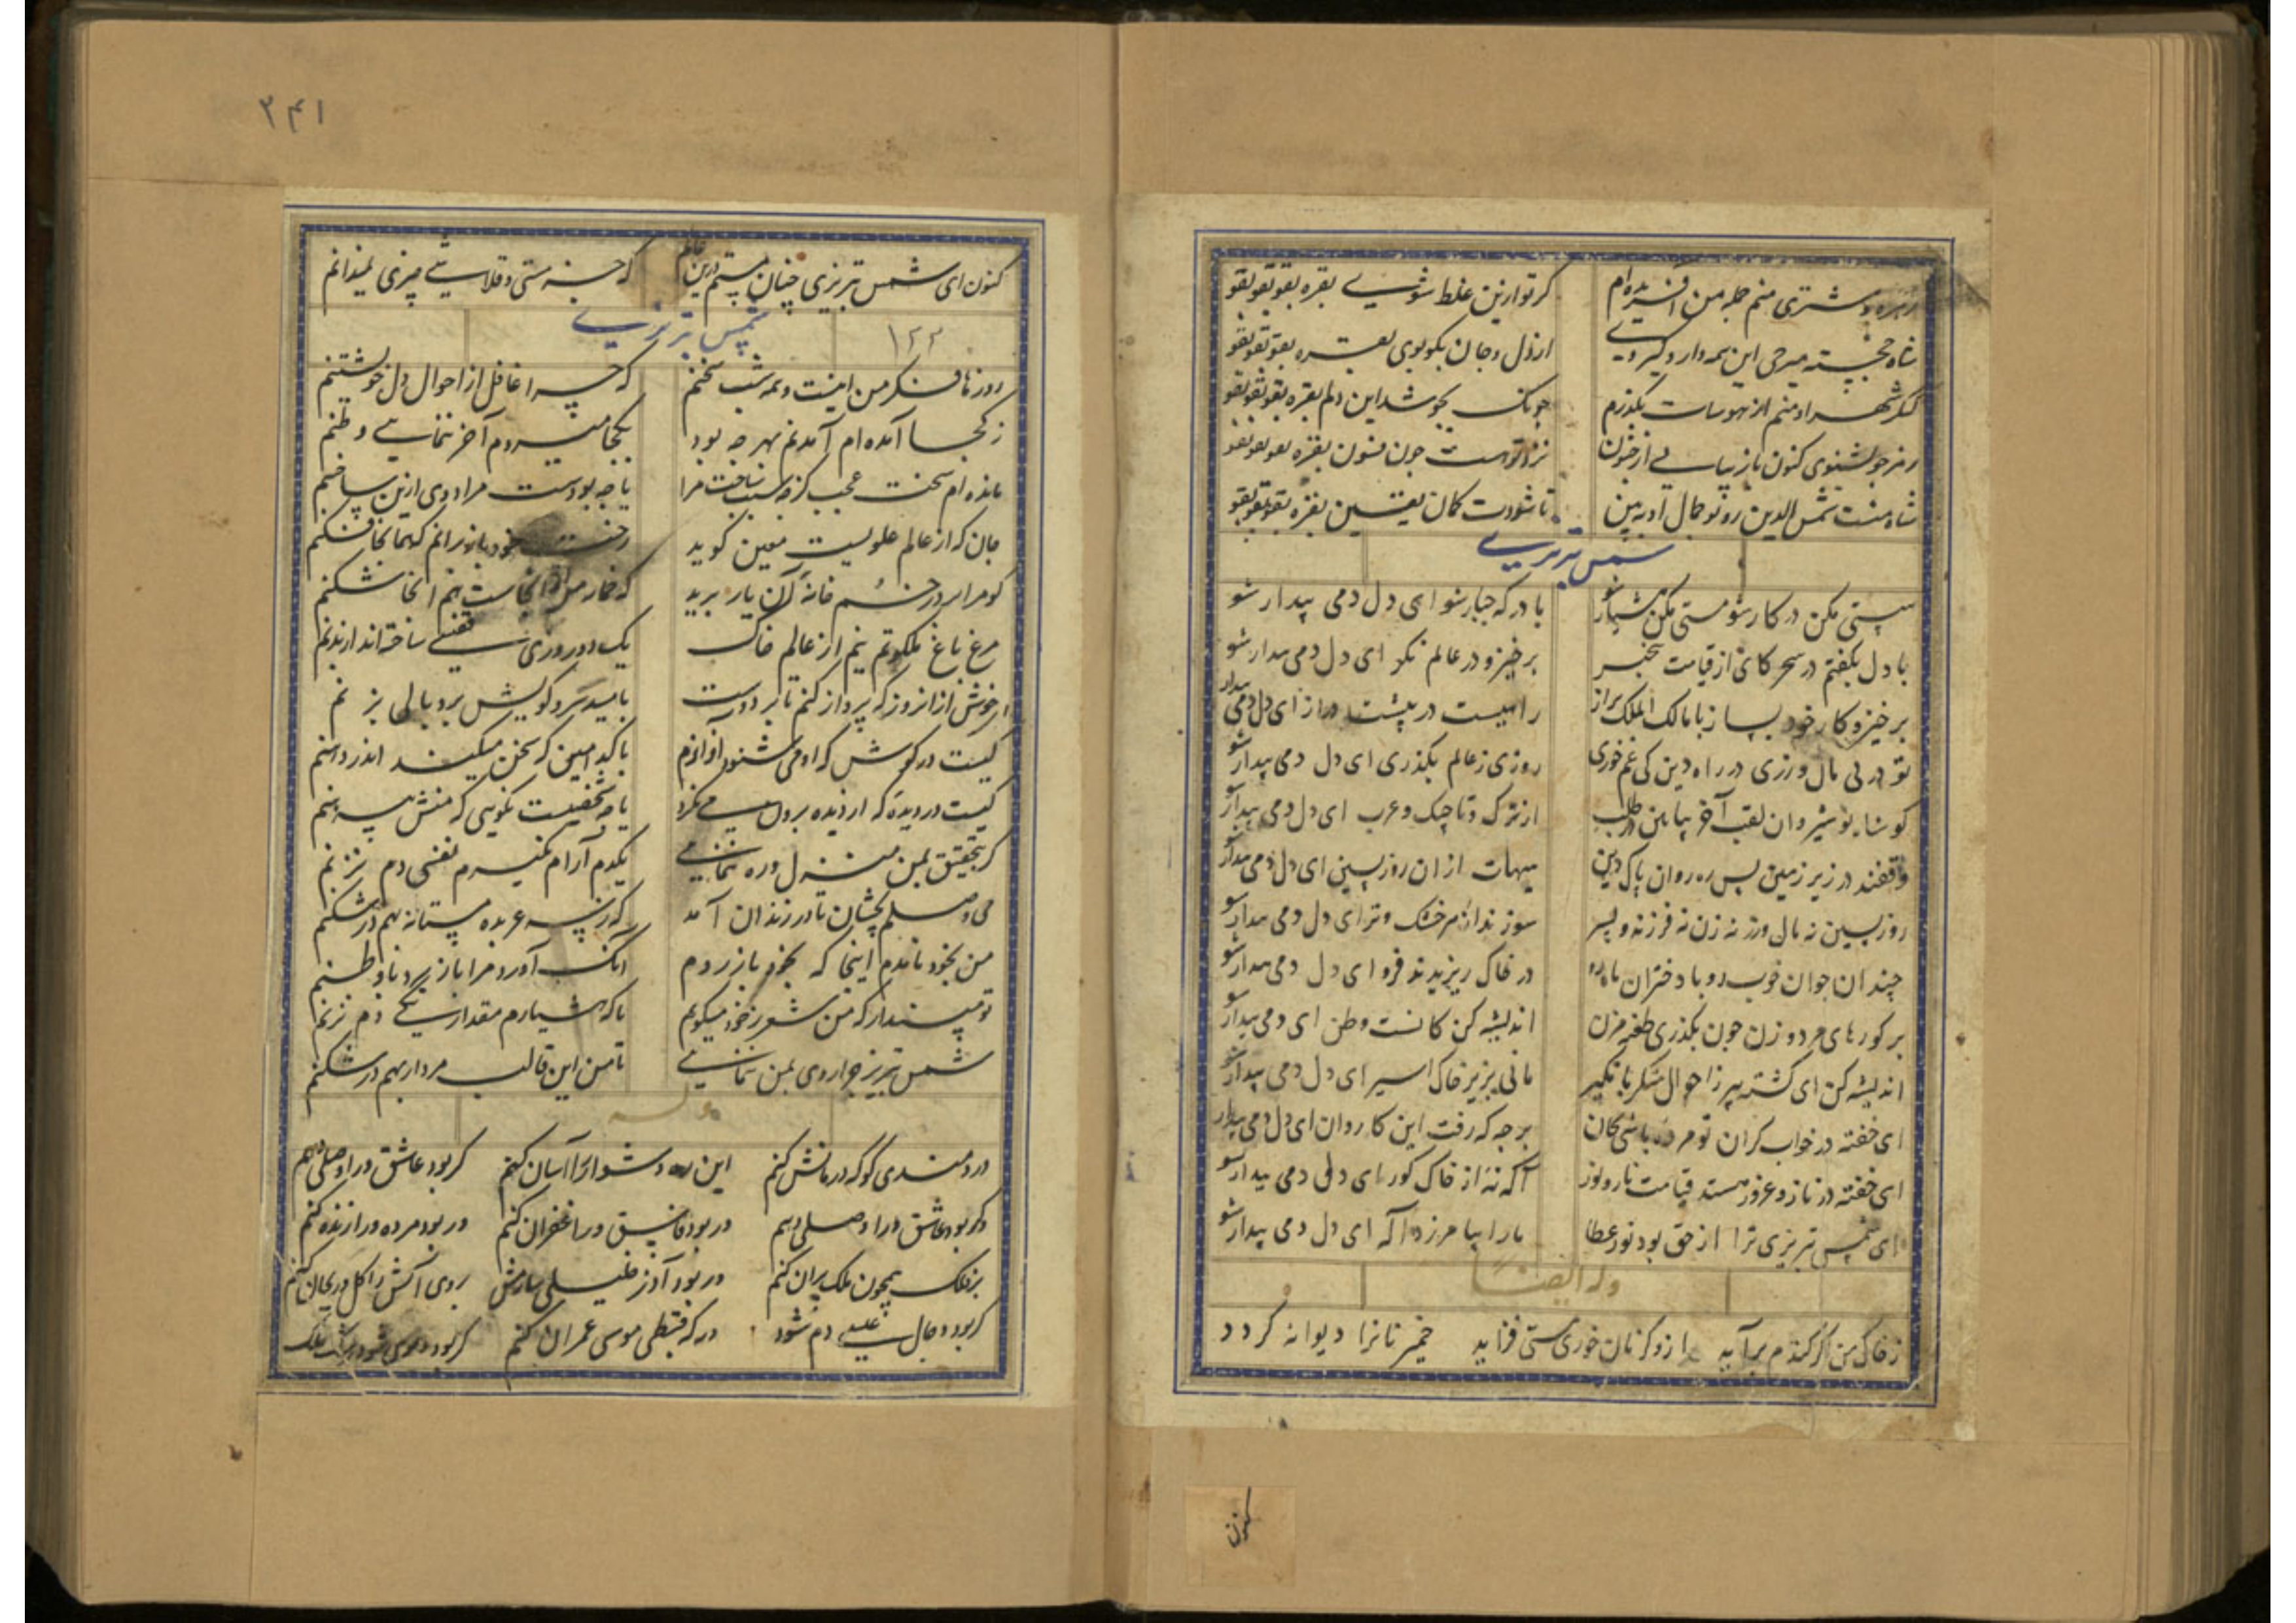 زهره و مشتری منم جمله من آفریده‌ام کر تو ازین غلط شوی بقره بقو بقو بقو
از دل و جان بکوبوی بقره بقو بقو بقو
این دلم بقره بقو بقو بقو
رمز چو بشنوی کنون باز بیا
شاه منست شمس الدین رو تو جمال او ببین تا شودت کمان یقین بقره بقو بقو بقو
شمس تبریزی
سستی مکن در کار شو مستی مکن هشیار شو با درکه جبار شو ای دل دمی بیدار شو
با دل بکفتم در سحر کای از قیامت بیخبر برخیز و در عالم نکر ای دل دمی بیدار شو
برخیز و کار خود بساز با مالک الملک براز راهیست در پیشت دراز ای دل دمی بیدار شو
تو در پی مال و زری در راه دین کی غم خوری روزی ز عالم بکذری ای دل دمی بیدار شو
کو شاه نوشیروان لقب آخر بیا بین در طلب از ترک و تاجیک و عرب ای دل دمی بیدار شو
خفتند در زیر زمین بس ره روان پاک دین هیهات از ان روز پسین ای دل دمی بیدار شو
روز پسین نه مال و زر نه زن نه فرزند و پسر سوزند از هر خشک و تر ای دل دمی بیدار شو
چندان جوان خوب رو با دختران ماه رو در خاک ریزیدند فرو ای دل دمی بیدار شو
بر کورهای مرد و زن چون بکذری طعنه مزن اندیشه کن کانست وطن ای دمی بیدار شو
اندیشه کن ای کشته پیر ز احوال منکر با نکیر مانی بزیر خاک اسیر ای دل دمی بیدار شو
ای خفته در خواب کران تو مرده باشی کان برجه که رفت این کاروان ای دل دمی بیدار شو
ای خفته در ناز و غرور قیامت آکه نه از خاک کور ای دل دمی بیدار شو
ای شمس تبریزی ترا از حق بود نور عطا ما را بیامرزد اله ای دل دمی بیدار شو
وله ایضا
ز خاک من اکر کندم برآید ازو کر نان خوری مستی فزاید خمیر نانبا دیوانه کردد
کنون
۲۴۱
کنون ای شمس تبریزی چنان مستم درین عالم که جز مستی و قلاشی چیزی نمیدانم
شمس تبریزی
۱۲۲
روزها فکر من اینست و همه شب سخنم که چرا غافل از احوال دل خویشتنم
ز کجا آمده‌ام آمدنم بهر چه بود بکجا میروم آخر ننمایی وطنم
مانده‌ام سخت عجب کز چه سبب ساخت مرا یا چه بودست مراد وی ازین ساختنم
جان که از عالم علویست یقین کوید رخت خود باز برانم که همانجا فکنم
کو مرا بر در خم خانه آن یار برید که خمار من از انجاست هم انجا شکنم
مرغ باغ ملکوتم نیم از عالم خاک یک دو روزی قفسی ساخته‌اند از بدنم
ای خوش آن روز که پرواز کنم تا بر دوست بامید سر کویش پر و بالی بزنم
کیست در کوش که او می شنود آوازم یا کدامین که سخن میکند اندر دهنم
کیست در دیده که از دیده برون می نکرد یا چه شخصیست نکویی که منش پیرهنم
کر بتحقیق بمن منزل و ره ننمایی یکدم آرام نکیرم نفسی دم نزنم
می وصلم بچشان تا در زندان آمد که ز سر عربده مستانه بهم در شکنم
من بخود نامدم اینجا که بخود باز روم آنک آورد مرا باز برد تا وطنم
تو مپندار که من شعر ز خود میکویم تا که هشیارم مقدار یکی دم نزنم
شمس تبریز چرا روی بمن ننمایی تا من این قالب مردار بهم در شکنم
وله
دردمندی کو که درمانش کنم این ره دشوار را آسان کنم کر بود عاشق ورا وصلی دهم
ور بود عاشق ورا وصلی دهم ور بود فاسق ورا غفران کنم ور بود مرده ورا زنده کنم
بر فلک همچون ملک پران کنم ور بود آذر خلیلی سازمش روی آتش را کل و ریحان کنم
کر بود دجال عیسی دم شود ور که قبطی موسی عمران کنم